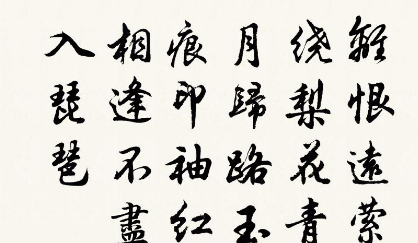 離恨遠萦
绕梨花青
月歸路玉
痕印袖红
相逢不盡
入琵琶